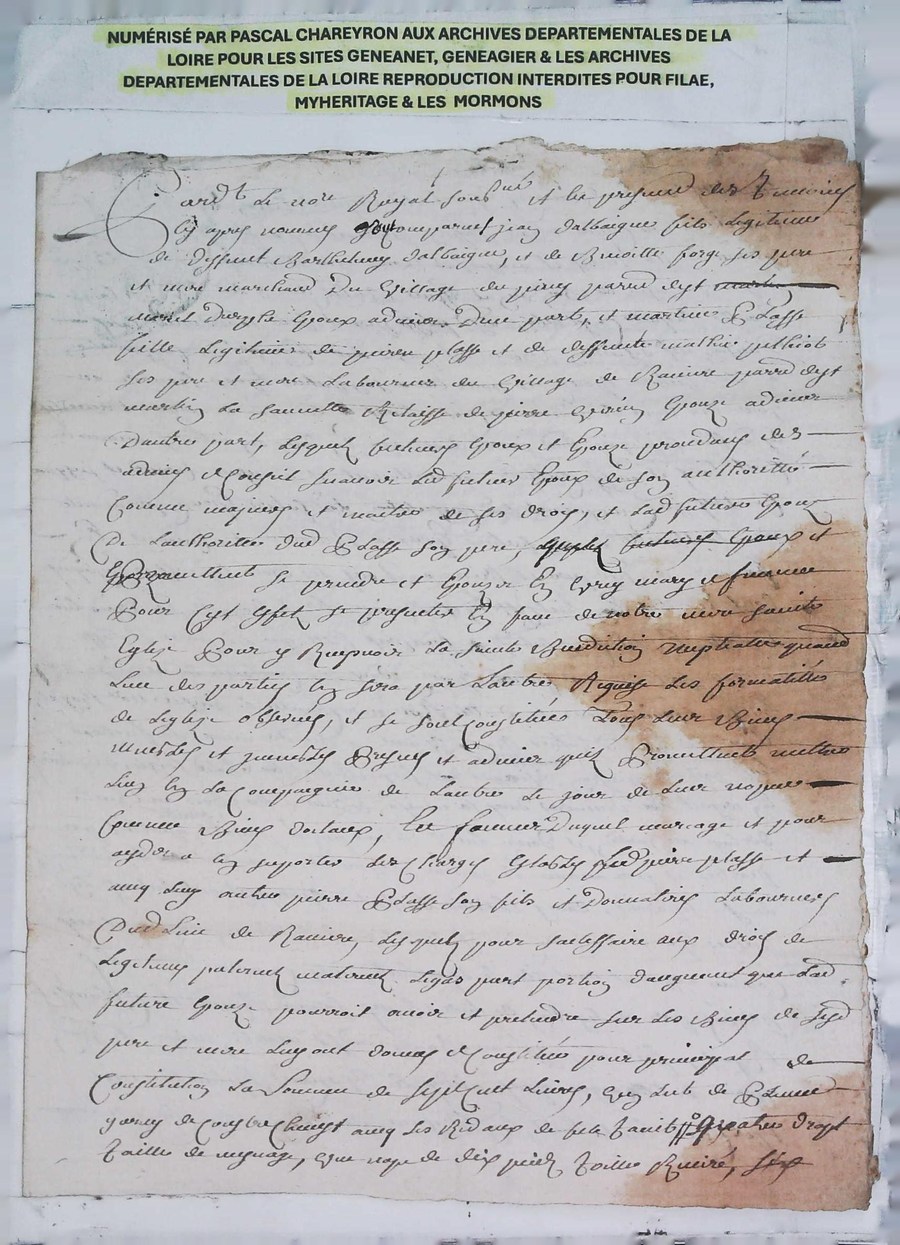 NUMÉRISÉ PAR PASCAL CHAREYRON AUX ARCHIVES DEPARTEMENTALES DE LA
LOIRE POUR LES SITES GENEANET, GENEAGIER & LES ARCHIVES
DEPARTEMENTALES DE LA LOIRE REPRODUCTION INTERDITES POUR FILAE,
MYHERITAGE & LES MORMONS
Pardt le nore Royal soubné et les presences des Temoins
cy apres nommes comparent jean dalbaigne fils legitime
de deffunct Barthelemy dalbaigne, et de Benoitte forge ses pere
et mere marchand du village du piney parroisse
Epoux advenir Dune part, et martine Plasse
fille legitime de pierre plasse et de deffuncte mathie
ses pere et mere Laboureur du village de Raniere parr dst
martin la sauvette Relaisse de pierre Epouze advenir
Dautre part, lesquels futeurs Epoux et Epouze des
advis et conseil scavoir led futeur Epoux de son authoritté
Comme majeur et maitre de ses droits, et lad future Epouze
De lauthoritté dud Plasse son pere, futeurs Epoux et
se prendre et Epouzer En vrays mary et femme
Pour cest effet se presenter En face de notre mere sainte
Eglize Pour y Recepvoir la sainte Benediction nuptialle quand
lune des parties En sera par lautre Requise les formalittés
de leglize observées, et se sont constitués tous leur Biens
meubles et jmeubles Presens et advenir quils Promettent mettre
lun En la compagnie de lautre le jour de leur nopces
Comme Biens dotaux, En faveur Duquel mariage et pour
ayder a En suporter les charges Establys led pierre plasse et
avec luy autre pierre Plasse son fils et Donnataire Laboureurs
Dud lieu de Raniere, lesquels pour satisfaire aux droits de
legitime paternels maternels legas part portion daugment que lad
future Epouze pourroit avoir et pretendre sur les Biens de sesd
pere et mere luy ont donnés et constitués pour principal de
Constitution la somme de sept cent livres, un lict de Plume
garny de coustre Chevest avec ses Ridaux de quatre drapt
toille de mesnage, une nape de dix pieds toille six